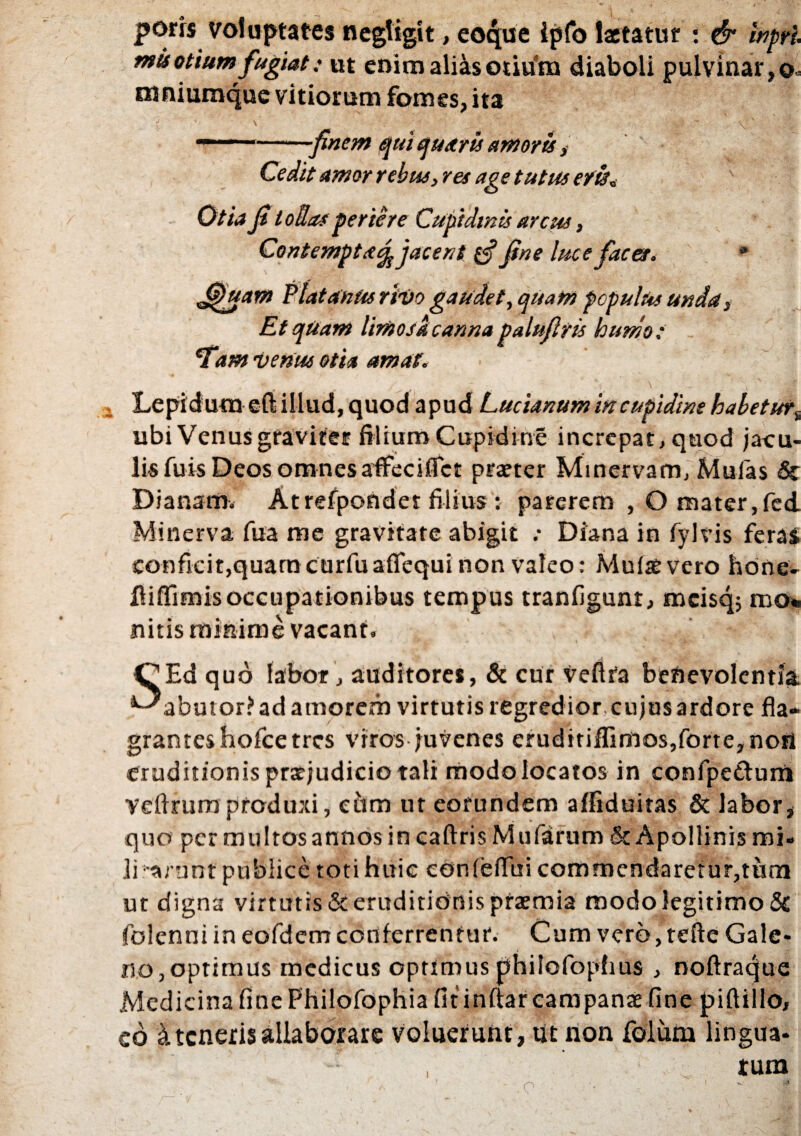 poris voluptates negligit, eoque ipso lætatur : & inpri-
mis otium fugiat: ut enim aliàs otium diaboli pulvinar, o-
mniumque vitiorum fomes, ita
———finem qui quæris amoris,
Cedit amor rebus, res age tutus eris.
Otia si tollas periêre Cupidinis arcus,
Contemptæq; jacent & sine luce faces.
Quam Platanus rivo gaudet, quam populus unda,
Et quam limosa canna palustris humo:
Tam venus otia amat.
Lepidum est illud, quod apud Lucianum in cupidine habetur,
ubi Venus graviter filium Cupidinē increpat, quod jacu-
lis suis Deos omnes affecisset præter Minervam, Musas &
Dianam. At respondet filius : parerem , O mater, sed
Minerva sua me gravitate abigit : Diana in sylvis feras
conficit, quam cursu assequi non valeo: Musæ vero hone-
stissimis occupationibus tempus transigunt, meisq; mo-
nitis minimè vacant.
SEd quò labor, auditores, & cur vestra benevolentia
abutor? ad amorem virtutis regredior cujus ardore fla-
grantes hosce tres viros juvenes eruditissimos, forte, non
eruditionis præjudicio tali modo locatos in conspectum
vestrum produxi, cùm ut eorundem assiduitas & labor,
quo per multos annos in castris Musarum & Apollinis mi-
litarunt publicè toti huic consessui commendaretur, tùm
ut digna virtutis & eruditionis præmia modo legitimo &
solenni in eosdem conferrentur. Cum verò, teste Gale-
no, optimus medicus optimus philosophus , nostraque
Medicina sine Philosophia sit instar campanæ sine pistillo,
eò à teneris allaborare voluerunt, ut non solùm lingua-
rum